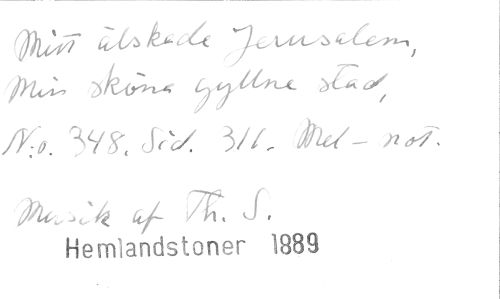 Mitt älskade Jerusalem,
Min sköna gyllne stad,
N:o. 348. Sid. 316. Mel-not.
Musik af Th. S.
Hemlandstoner 1889